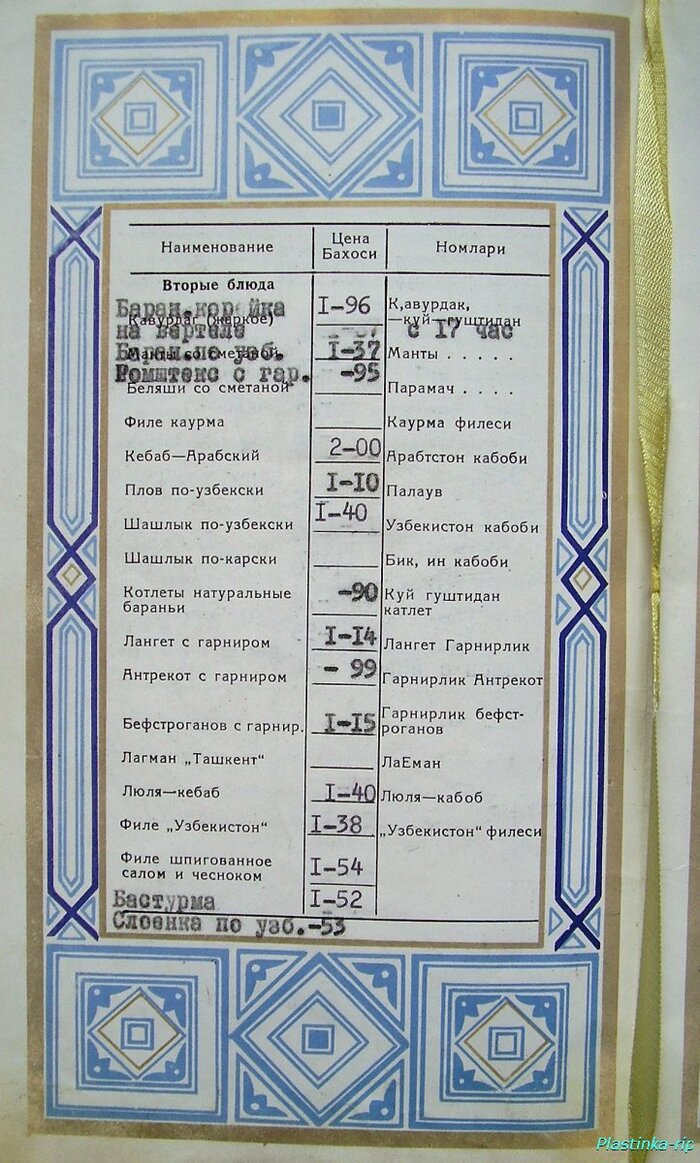 Наименование Цена Бахоси Номлари
Вторые блюда
Баран.корейка I-96 К,авурдак,
Кавурдаг (жаркое) —куй—гуштидан
на вертеле с 17 час
Баран.по узб. I-37
Манты со сметаной Манты . . . . .
Ромштекс с гар. -95
Беляши со сметаной Парамач . . . .
Филе каурма Каурма филеси
Кебаб—Арабский 2-00 Арабтстон кабоби
Плов по-узбекски I-IO Палаув
Шашлык по-узбекски I-40 Узбекистон кабоби
Шашлык по-карски Бик, ин кабоби
Котлеты натуральные -90 Куй гуштидан
бараньи катлет
Лангет с гарниром I-I4 Лангет Гарнирлик
Антрекот с гарниром - 99 Гарнирлик Антрекот
Бефстроганов с гарнир. I-I5 Гарнирлик бефст-
роганов
Лагман „Ташкент“ ЛаЕман
Люля—кебаб I-40 Люля—кабоб
Филе „Узбекистон“ I-38 „Узбекистон“ филеси
Филе шпигованное
салом и чесноком I-54
Бастурма I-52
Слоенка по узб.-53
Plastinka-rip